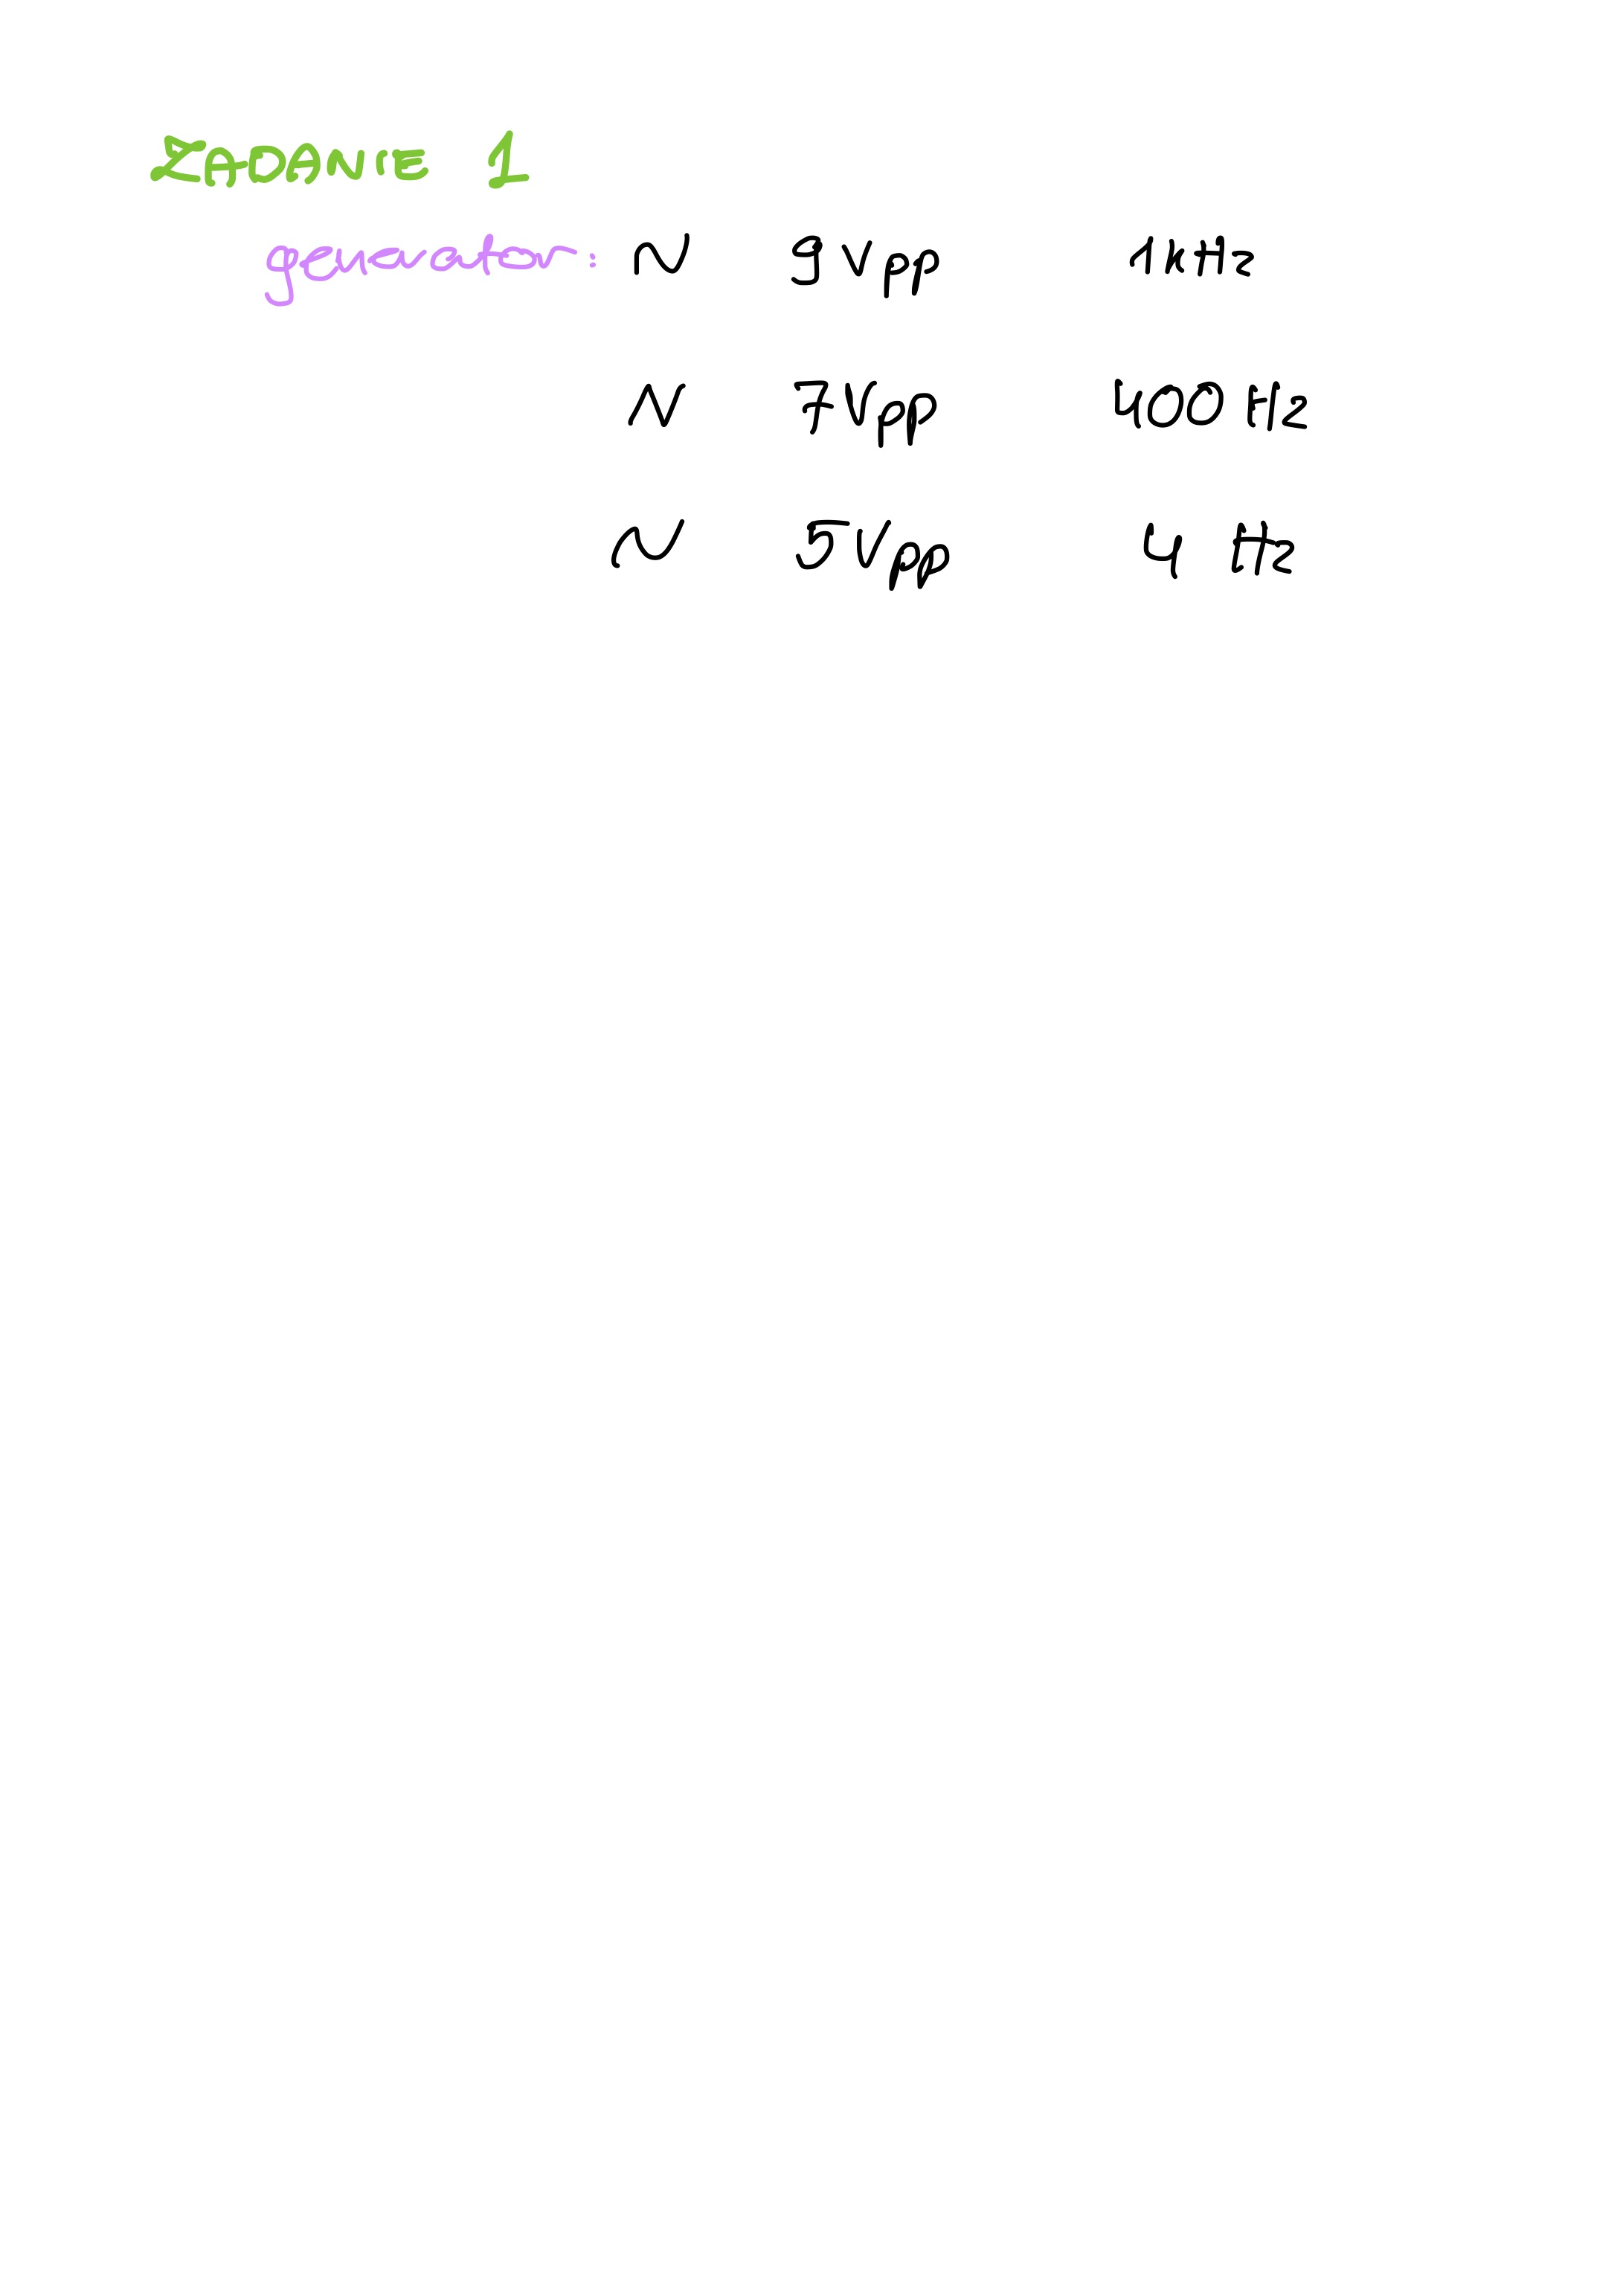 ZADANIE 1
generator: ~ 9 Vpp 1kHz
7Vpp 400 Hz
~ 5Vpp 4 Hz